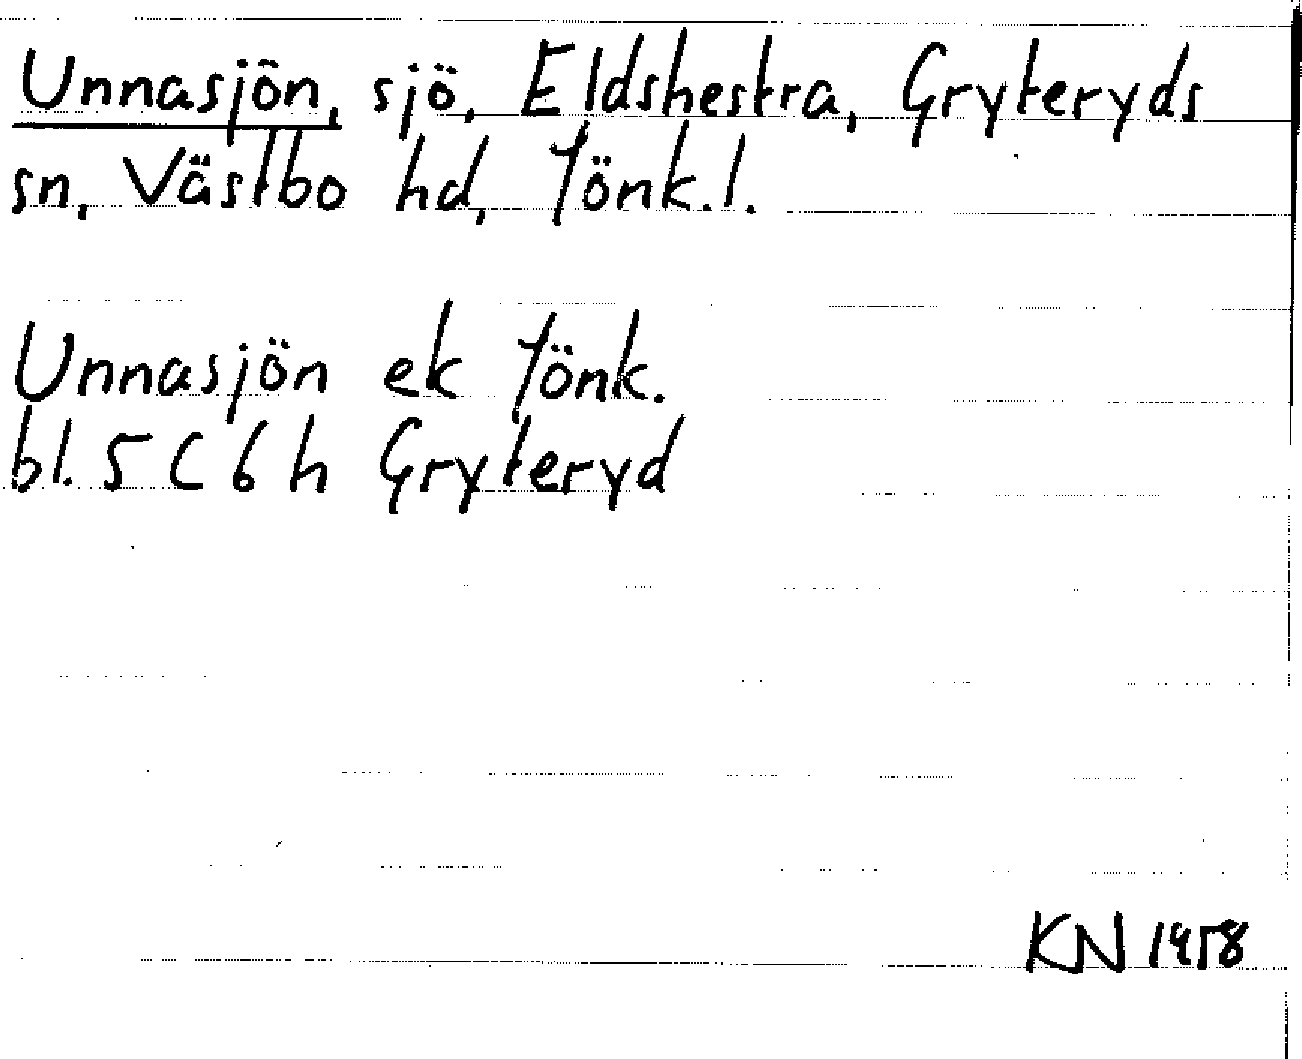 Unnasjön, sjö, Eldshestra, Gryteryds
sn, Västbo hd, Jönk.l.
Unnasjön ek Jönk.
bl. 5 C 6 h Gryteryd
KN 1958